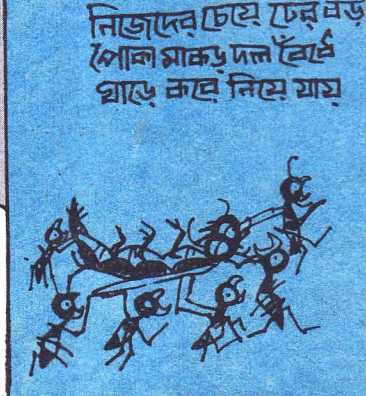 নিজেদের চেয়ে ঢের বড়
পোকা মাকড় দল বেঁধে
ঘাড়ে করে নিয়ে যায়